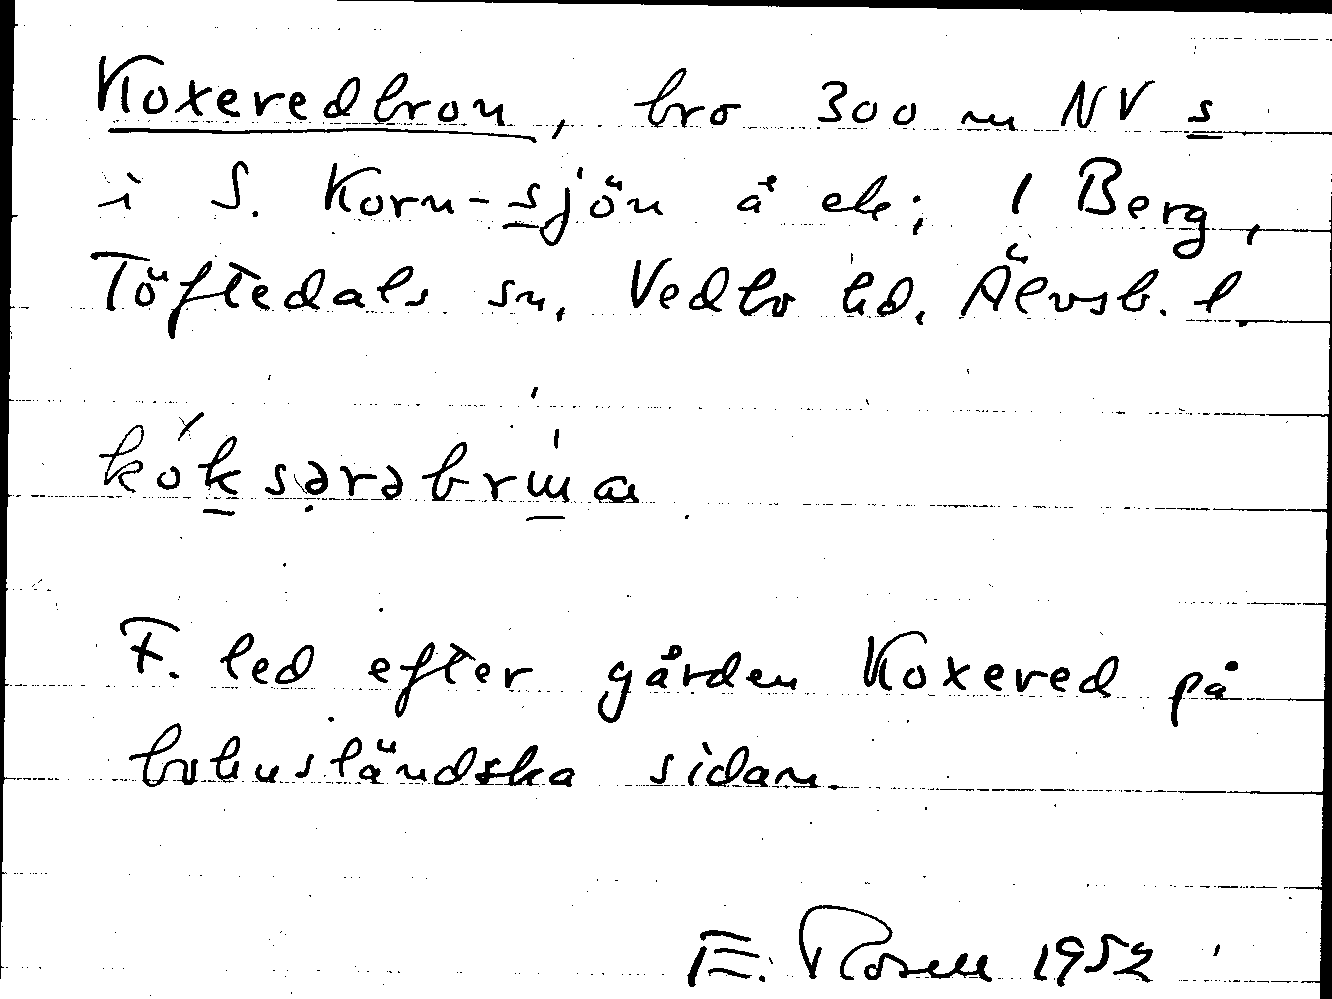 Koxeredbron, bro 300 m NV s
i S. Korn-sjön å ek; 1 Berg,
Töftedals sn, Vedbo hd, Älvsb. l.
kóksərəbrɯa
F. led efter gården Koxered på
bohusländska sidan.
E. Rosell 1952